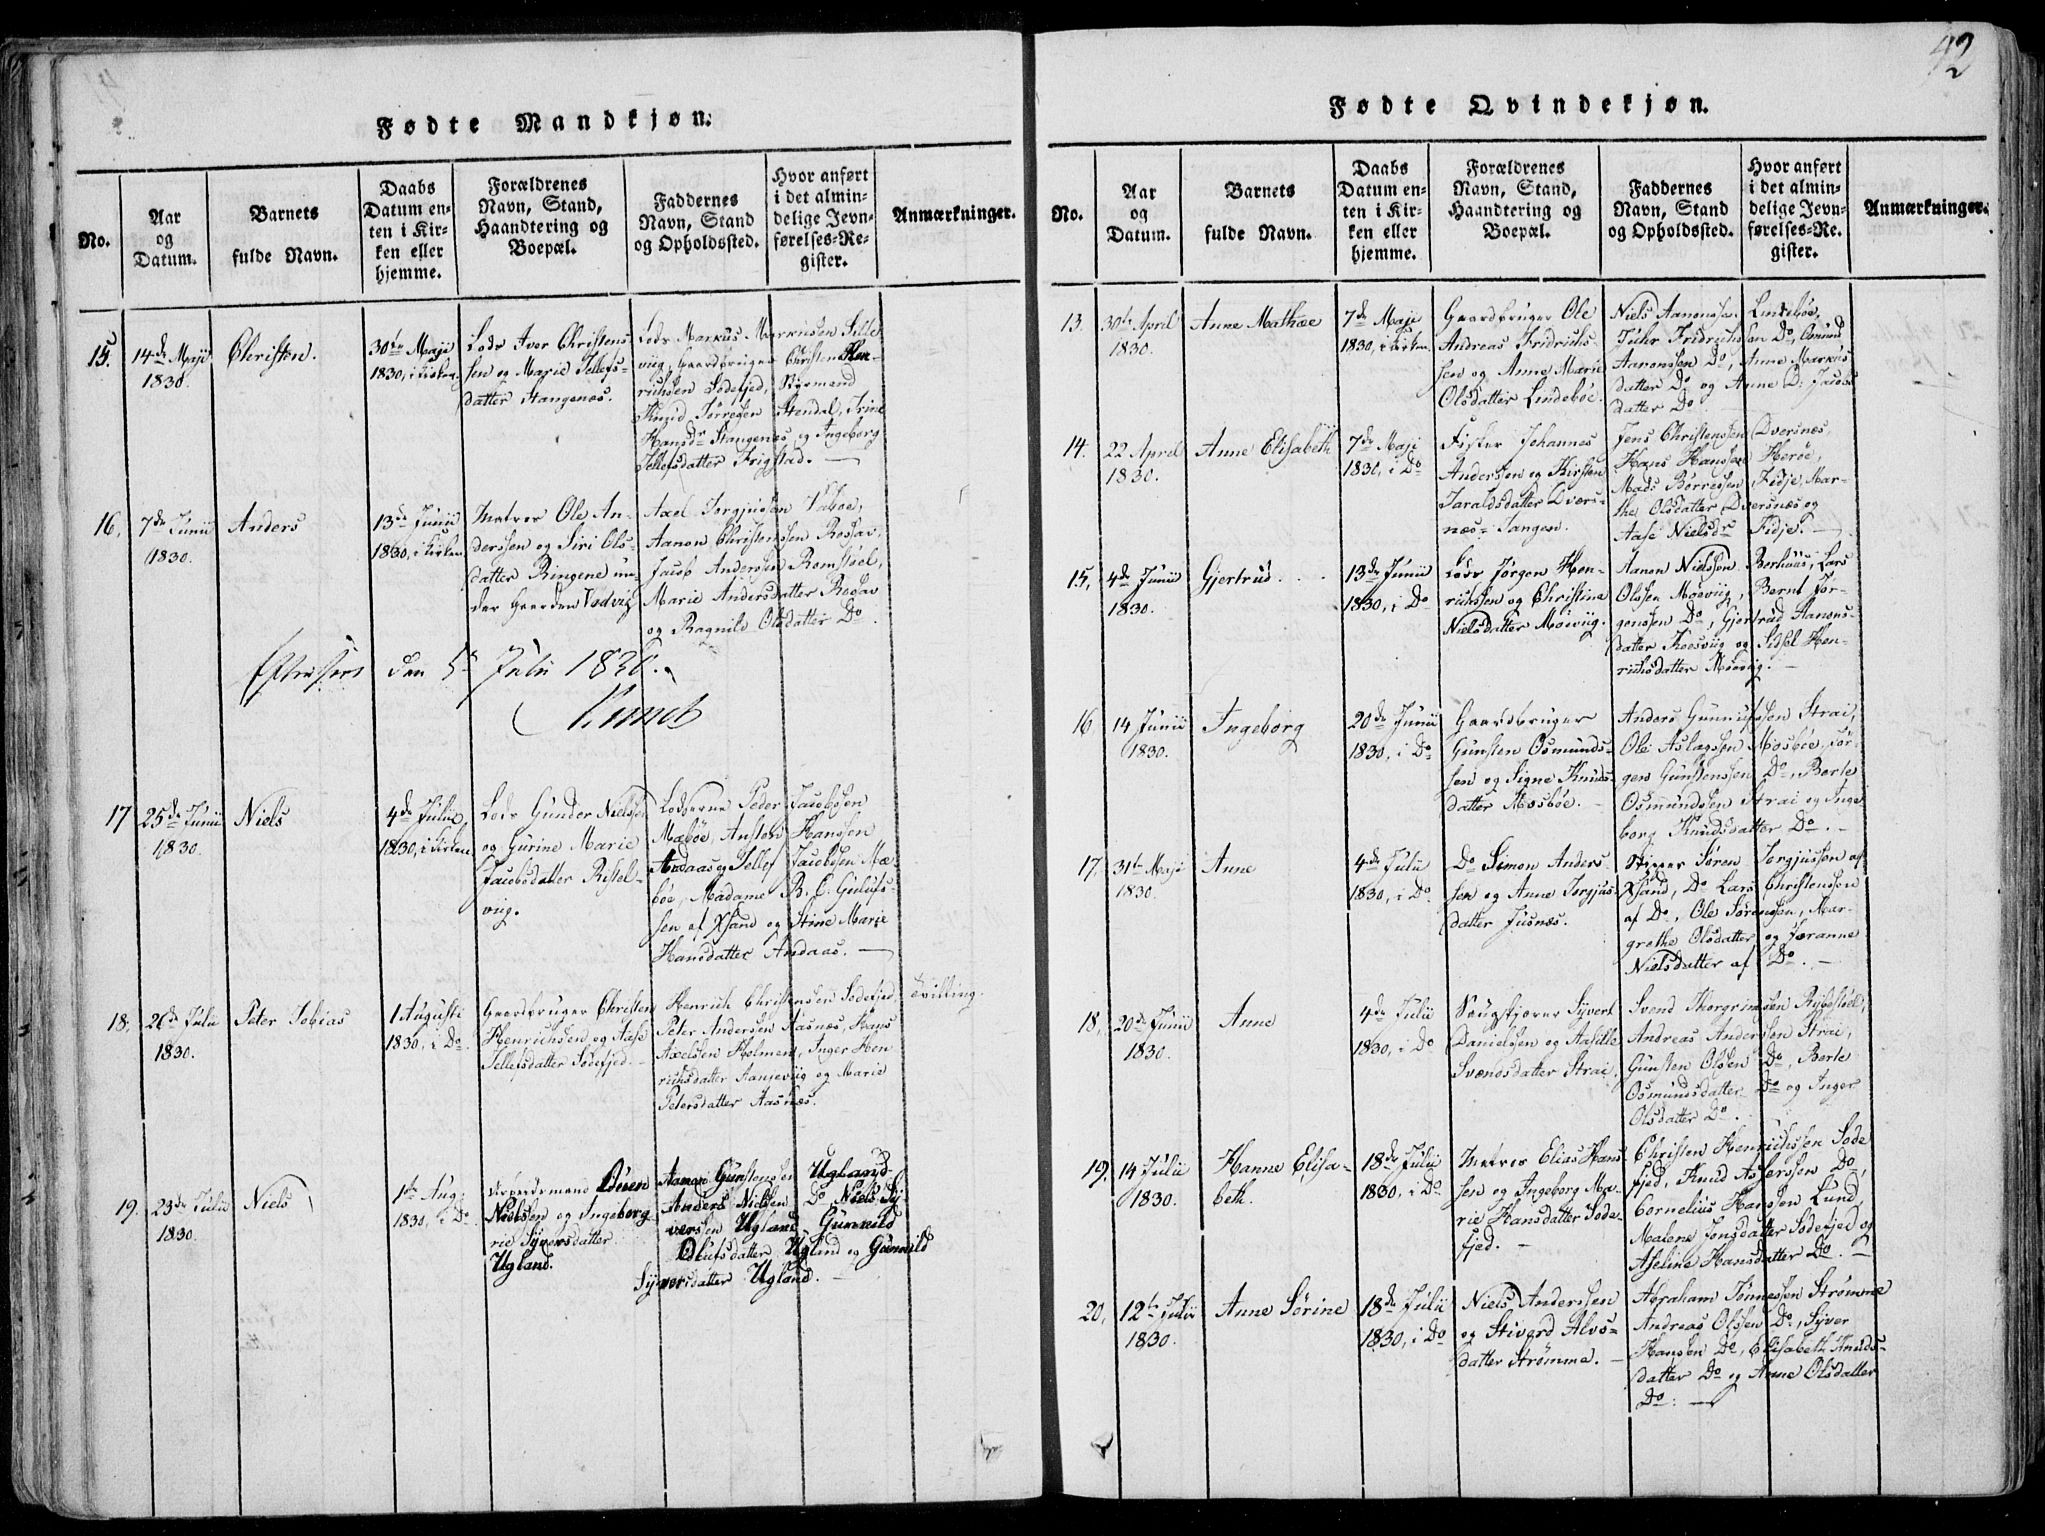 42
Fødte Mandkjøn.
No.
Aar
og
Datum.
Barnets
fulde Navn.
Daabs
Datum en-
ten i Kir-
ken eller
hjemme.
Forældrenes
Navn, Stand,
Haandtering og
Boepæl.
Faddernes
Navn, Stand
og Opholdssted.
Hvor anført
i det almin-
delige Jevn-
førelses-Re-
gister.
Anmærkninger.
15.
14de Maji
1830.
Christen.
30te Maji
1830, i Kirken.
Lods Iver Christens-
sen og Marie Tellefs-
datter Stangenæs.
Lods Markus Markusen Sille
viig, Gaardbruger Christen Hen-
richsen Sodefjed, Byemand
Knud Tørresen Stendal, Trine
Hansdr Stangenæs og Ingeborg
Tellefsdatter Frigstad. —
16.
7de Junii
1830.
Anders
13de Junii
1830, i Kirken
Matros Ole An-
derssen og Siri Ols-
datter Ringene un-
der Gaarden Vedvig
Axel Torgjussen Vaaoe,
Aanon Christenssen Rossav,
Jacob Andersen Romstøel,
Marie Andersdatter Rosav
og Ragnild Olsdatter Do.
Efterseet den 5te Julii 1830.
17
25de Junii
1830.
Niels
4de Julii
1830, i Kirken
Lods Gunder Nielssen
og Gurine Marie
Jacobsdatter Ristel-
viig.
Lodserne Peder Jacobsen
Mæbøe, Ansten Hanssen
Andaas og Tellef Jacobsen Mæ-
bøe, Madame B. C. Geelufs-
sen af Xsand og Stine Marie
Hansdatter Andaas. —
18.
26de Julii
1830.
Peter Tobias
1 Augusti
1830, i Do.
Gaardbruger Christen
Henrichsen og Aase
Tellefsdatter Sodefjed. —
Henrich Christensen Sodefjed,
Peter Andersen Aasnæs, Hans
Axelsen Holmen, Inger Hen
richsdatter Aanieviig og Marie
Petersdatter Aasnæs.
Tvilling.
19.
23de Julii
1830.
Niels
1te Aug:
1830, i Do
Arbeidsmand Ouen
Nielsen og Ingeborg-
rie Syversdatter
Ugland.
Aanon Gunstensen Ugland
Anders Nielsen Do Niels Sy
versen Ugland, Gunnild
Olufsdatter Ugland og Gunnild
Syversdatter Ugland. —
Fødte Qvindekjøn.
No.
Aar
og
Datum.
Barnets
fulde Navn.
Daabs
Datum en-
ten i Kir-
ken eller
hjemme.
Forældrenes
Navn, Stand,
Haandtering og
Boepæl.
Faddernes
Navn, Stand
og Opholdssted.
Hvor anført
i det almin-
delige Jevn-
førelses-Re-
gister.
Anmærkninger.
13.
30te April
1830.
Anne Mathæe
7de Maji
1830, i Kirken
Gaardbruger Ole
Andreas Fridrichs-
sen og Anne Marie
Olsdatter Lindebøe.
Niels Aanonssen Lindebøe,
Fridrichsen Do, Osmund
Aanonssen Do, Anne Markus
datter Do og Anne D: Jacobs
datter Do
14.
22 April
1830.
Anne Elisabeth
7de Maji
1830, i Do
Fisker Johannes
Anderssen og Kirsten
Taraldsdatter Dvers-
næs-Tangen.
Jens Christenssen Dversnæs,
Hans Hanssen Herøe,
Mads Børressen Fidje, Mar-
the Olsdatter Dversnæs og
Aase Nielsdr Fidje. —
15.
4de Junii
1830.
Gjertrud.
13de Junii
1830, i Do
Lods Jørgen Hen-
richssen og Christine
Nielsdatter Møeviig.
Aanon Nielssen Berhuus, Lars
Olssen Møeviig, Bernt Jør-
genssen Do, Gjertrud Aanons-
datter Koesviig og Sidsel Hen-
richsdatter Møeviig. —
16
14 Junii
1830.
Ingeborg
20de Junii
1830, i Do
Gaardbruger
Gunsten Osmunds-
sen og Signe Knuds-
datter Mosbøe. —
Anders Gunnufssen Strai,
Ole Aslagssen Mosbøe, Jør-
gen Gunstenssen Do, Berte
Osmundssen Strai og Inge
borg Knudsdatter Do. —
17.
31te Maji
1830.
Anne
4de Julii
1830, i Do.
Do Simon Anders-
sen og Anne Torgjus-
datter Justnæs.
Skipper Søren Torgjussen af
Xsand, Do Lars Christenssen
af Do, Ole Sørenssen, Mar-
grethe Olsdatter og Joranne
Nielsdatter af Do. —
18.
20de Junii
1830.
Anne
4de Julii
1830, i Do
Syvert
Danielssen og Aasille
Svendsdatter Strai.
Svend Thorgrimssen Rybestøel,
Andreas Anderssen Strai,
Gunsten Olssen Do, Berte
Osmundsdatter Do og Inger
Olsdatter Do.
19.
14 Julii
1830.
Hanne Elisa-
beth.
18de Julii
1830, i Do
Matros Elias Hans-
sen og Ingeborg Ma-
rie Hansdatter Sode-
fjed. —
Christen Henrichssen Sode
fjed, Knud Asserssen Do,
Cornelius Hanssen Lund,
Malene Jonsdatter Sodefjed og
Aseline Hansdatter Do. —
20.
12te Julii
1830.
Anne Sørine
18de Julii
1830, i Do
Niels Anderssen
og Siverd Alvs-
datter Strømme. —
Abraham Tønnessen Strømme
Andreas Olssen Do, Syver
Hansen Do, Elisabeth Knuds-
datter Do og Anne Olsdatter
Do: —